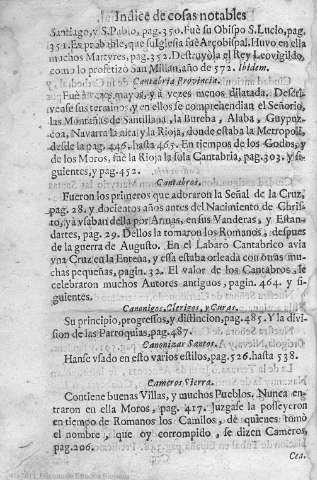 Indice de cosas notables
Santiago, y S. Pablo, pag. 350. Fuè su Obispo S. Lucio, pag.
351. Es probable, que su Iglesia fuè Arçobispal. Huvo en ella
muchos Martyres, pag. 352. Destruyòla el Rey Leovigildo,
como lo profetizò San Millan, año de 572. Ibidem.
Cantabria Provincia.
Fuè à vezes mayor, y à vezes menos dilatada. Descri-
vese sus terminos, y en ellos se comprehendian el Señorio,
las Montañas de Santillana, la Bureba, Alaba, Guypuz-
coa, Navarra la alta, y la Rioja, donde estaba la Metropoli,
desde la pag. 446. hasta 465. En tiempos de los Godos, y
de los Moros, fuè la Rioja la sola Cantabria, pag. 303. y si-
guientes, y pag. 452.
Cantabros.
Fueron los primeros que adoraron la Señal de la Cruz,
pag. 28. y docientos años antes del Nacimiento de Chris-
to, ya vsaban della por Armas, en sus Vanderas, y Estan-
dartes, pag. 29. Dellos la tomaron los Romanos, despues
de la guerra de Augusto. En el Labaro Cantabrico avia
vna Cruz en la Entena, y essa estaba orleada con otras mu-
chas pequeñas, pagin. 32. El valor de los Cantabros, le
celebraron muchos Autores antiguos, pagin. 464. y si-
guientes.
Canonigos, Clerigos, y Curas.
Su principio, progressos, y distincion, pag. 485. Y la divi-
sion de las Parroquias, pag. 487.
Canonizar Santos.
Hanse vsado en esto varios estilos, pag. 526. hasta 538.
Cameros Sierra.
Contiene buenas Villas, y muchos Pueblos. Nunca en-
traron en ella Moros, pag. 417. Juzgase la posseyeron
en tiempo de Romanos los Camilos, de quienes tomò
el nombre, que oy corrompido, se dizen Cameros,
pag. 206.
Cea.